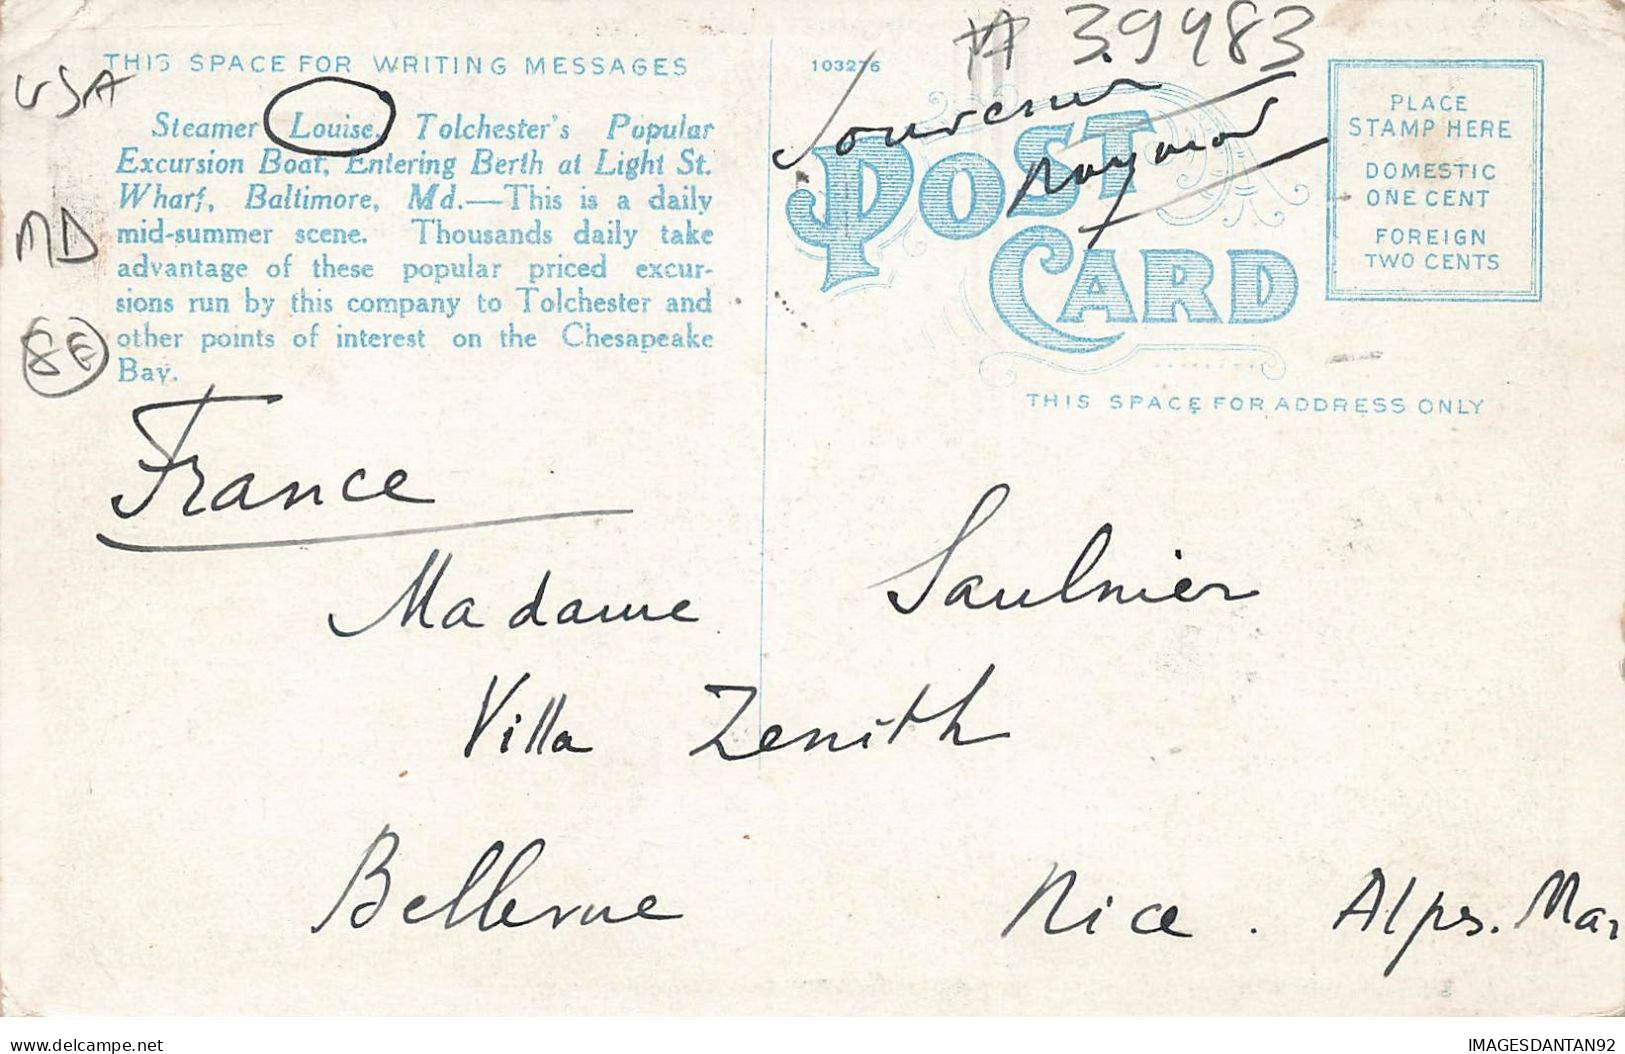 # 39483
THIS SPACE FOR WRITING MESSAGES
103276
USA
Steamer Louise, Tolchester's Popular
Excursion Boat, Entering Berth at Light St.
Wharf, Baltimore, Md.—This is a daily
mid-summer scene. Thousands daily take
advantage of these popular priced excur-
sions run by this company to Tolchester and
other points of interest on the Chesapeake
Bay.
MD
8E
Souvenir
Raymond
POST
CARD
PLACE
STAMP HERE
DOMESTIC
ONE CENT
FOREIGN
TWO CENTS
THIS SPACE FOR ADDRESS ONLY
France
Madame Saulnier
Villa Zenith
Bellevue Nice . Alps. Mar
delcampe.net
IMAGESDANTAN92